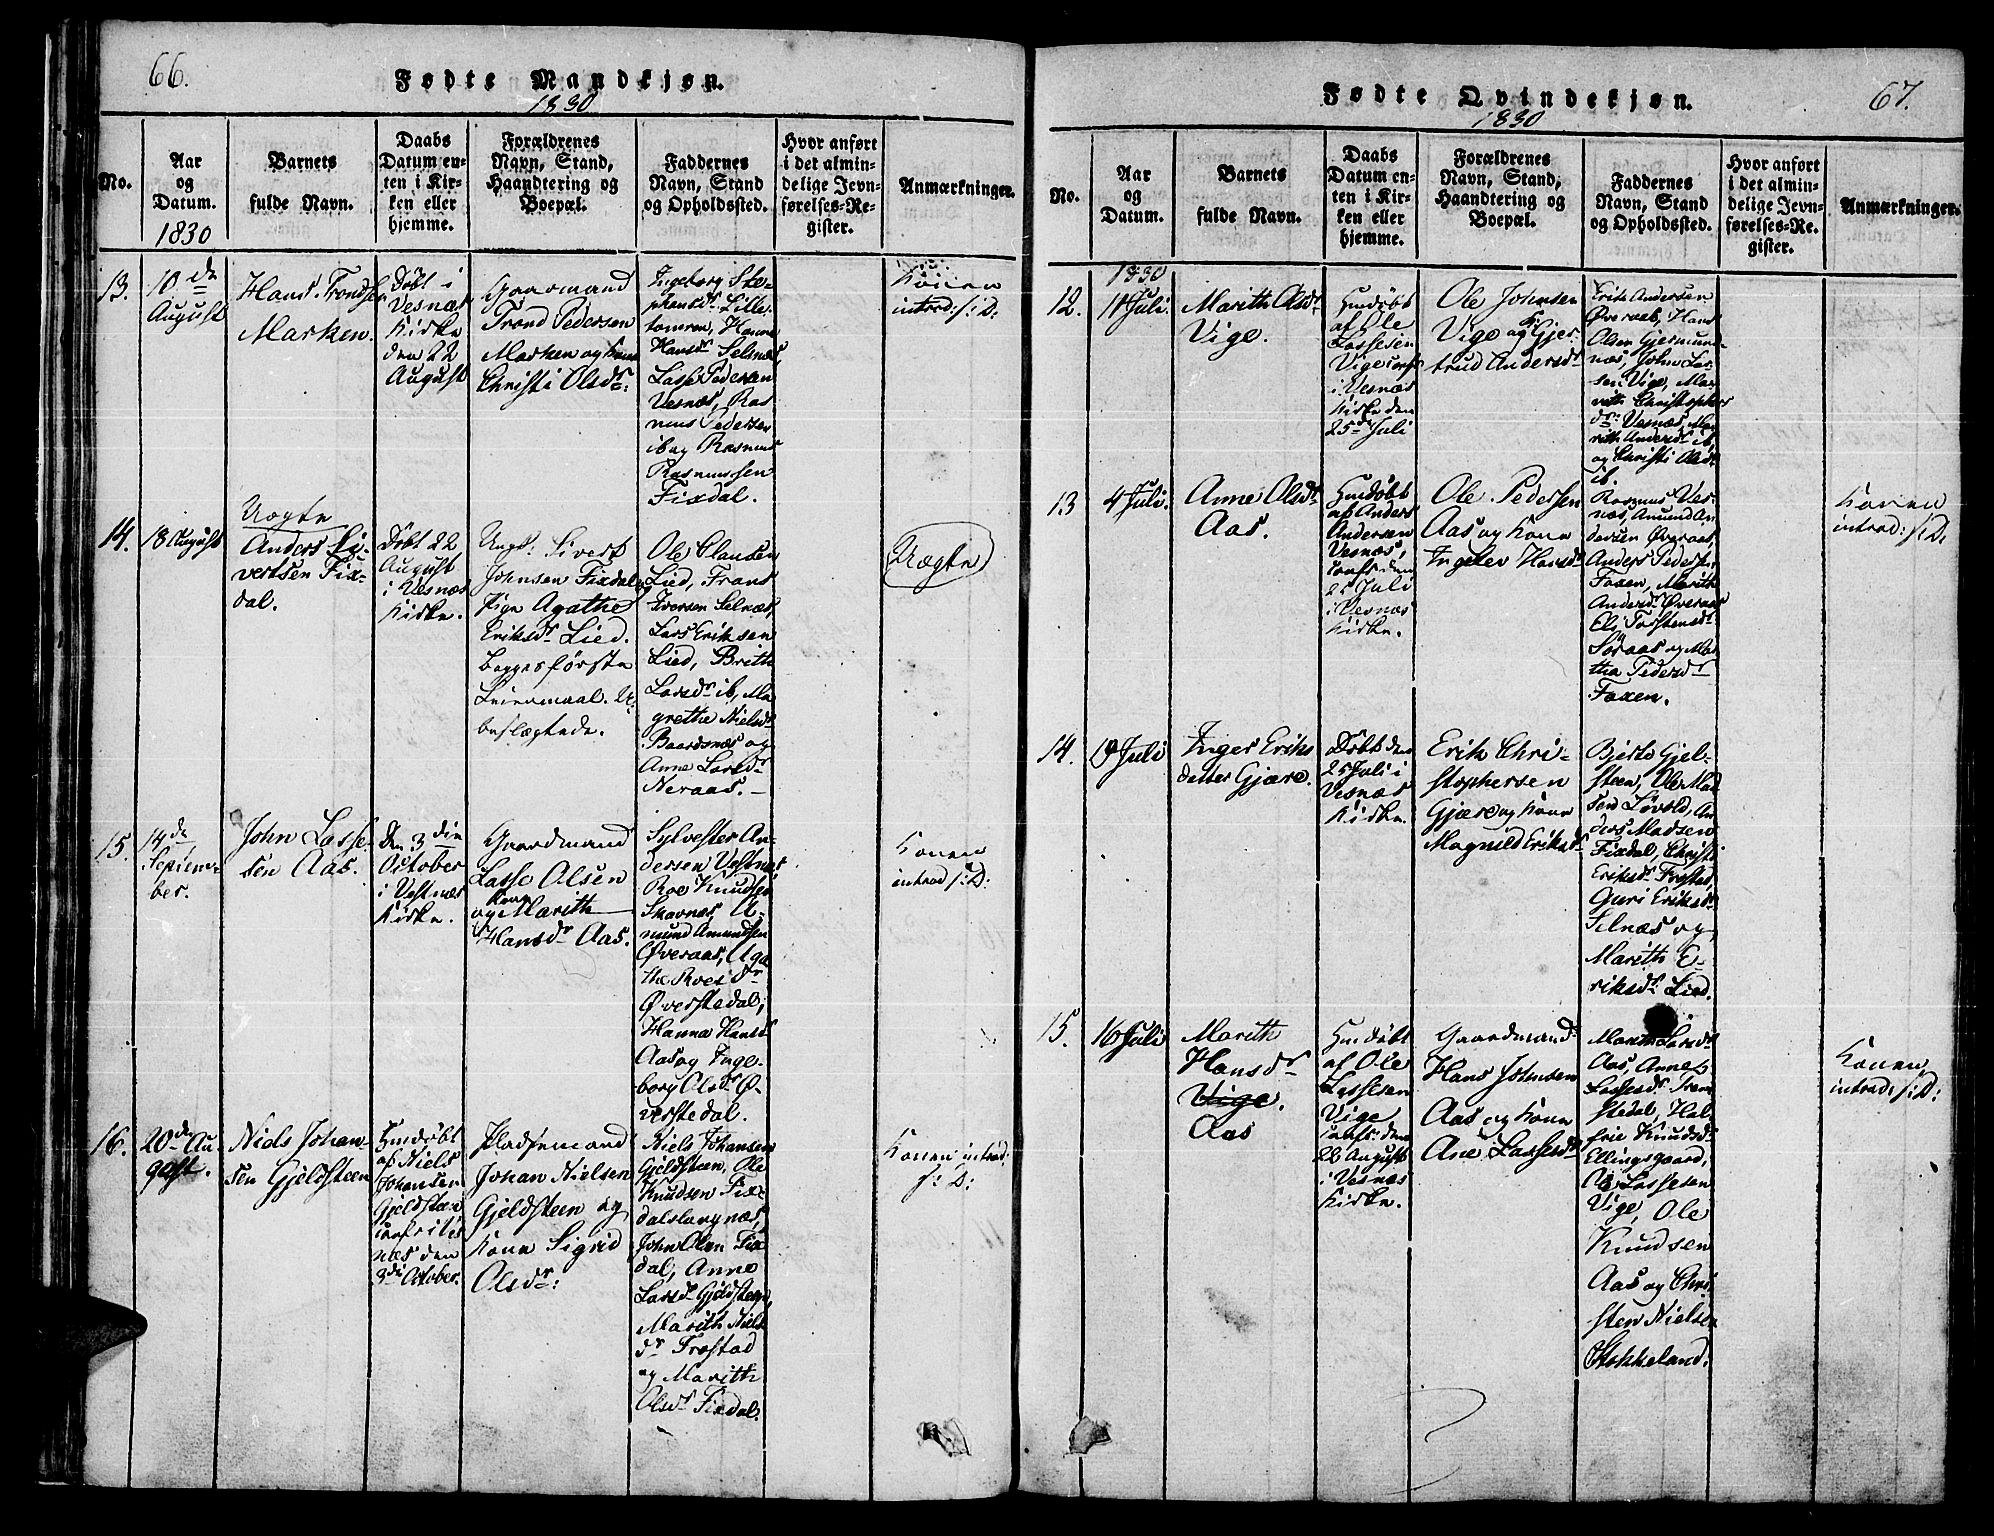 66.
Fødte Mandkjøn.
1830
No.
Aar
og
Datum.
1830
Barnets
fulde Navn.
Daabs
Datum en-
ten i Kir-
ken eller
hjemme.
Forældrenes
Navn, Stand,
Haandtering og
Boepæl.
Faddernes
Navn, Stand
og Opholdssted.
Hvor anført
i det almin-
delige Jevn-
førelses-Re-
gister.
Anmærkninger.
13.
10de
August
Hans Trondsen
Marken.
Døbt i
Vesnæs
Kirke
den 22
August
Gaardmand
Trond Pedersen
Marken og Kone
Christi Olsdr:
Ingeborg Ste-
phensdr Lille-
tomren, Hanna
Hansdr Selnæs,
Lasse Pedersen
Vesnæs, Ras
mus Pedersen
ib og Rasmus
Rasmussen
Fixdal.
Konen
introd: /: D:
14.
18 August
Uægte
Anders Si-
vertsen Fix-
dal.
Døbt 22
August
i Vesnæs
Kirke.
Ungk: Sivert
Johnsen Fixdal og
Pige Agathe
Eriksdr Lied.
Begges første
Leiermaal. U-
beslægtede.
Ole Clausen
Lied, Frans
Iversen Selnæs,
Lars Eriksen
Lied, Brith
Larsdr ib, Ma
grethe Nielsdr
Baardsnæs og
Anne Larsdr
Neraas. –
Uægte
15.
14de
Septem-
ber.
John Lasse-
sen Aas.
Den 3die
October
i Vestnæs
Kirke.
Gaardmand
Lasse Olsen
og Kone Marith
Hansdr Aas.
Sylvester An-
dersen Vestnæs
Roe Knudsen
Skavnæs, A-
mund Amundsen
Øveraas, Aga
the Roesdr
Øverstedal,
Hanna Hansdr
Aas og Inge-
borg Olsdr Ø-
verstedal.
Konen
introd /: D:
16.
20de Au-
gust.
Niels Johan-
sen Gjeldsteen
Hmdøbt
af Niels
Johansen
Gjeldsteen
conf i Ves
næs den
3di October.
Pladsemand
Johan Nielsen
Gjeldsteen og
Kone Sigrid
Olsdr:
Niels Johansen
Gjeldsteen, Ole
Knudsen Fix-
dalslangnæs,
John Olsen Fix
dal, Anne
Larsdr Gjeldsteen,
Marith Niels
dr Frostad
og Marith
Olsdr Fixdal.
Konen introd:
/: D:
67.
Fødte Qvindekjøn.
1830
No.
Aar
og
Datum.
1830
Barnets
fulde Navn.
Daabs
Datum en-
ten i Kir-
ken eller
hjemme.
Forældrenes
Navn, Stand,
Haandtering og
Boepæl.
Faddernes
Navn, Stand
og Opholdssted.
Hvor anført
i det almin-
delige Jevn-
førelses-Re-
gister.
Anmærkninger.
12.
Juli.
Marith Olsdr
Vige.
Hmdøbt
af Ole
Lassesen
Vige conf:
i Vesnæs
Kirke den
25 Juli
Ole Johnsen
Vige og K: Gjer
trud Andersdr
Erik Andersen
Øveraas, Hans
Olsen Gjermund
næs, John Las-
sen Vige, Ma-
rith Christopher
dr: Vesnæs, Ma
rith Andersdr ib
og Christi Olsdr
ib.
13
4 Juli.
Anne Olsdr
Aas.
Hmdøbt
af Anders
Andersen
Vesnæs,
conf: den
25 Juli
i Vesnæs
Kirke.
Ole Pedersen
Aas og Kone
Ingelev Hansdr
Rasmus Ves-
næs, Amund An
dersen Øveraas,
Anders Pedersen
Faxen, Marith
Andersdr Øveraas
Eli Torstensdr
Søraas og Mar
tha Pedersdr
Faxen.
Konen
introd: /: D:
14.
Juli
Inger Eriks
datter Gjære.
Døbt den
25 Juli i
Vesnæs
Kirke.
Erik Chri-
stophersen
Gjære og Kone
Magnild Eriksdr
Gjel-
steen, Ole Mad
sen Løvold, An
ders Madsen
Fixdal, Christi
Eriksdr Frostad,
Guri Eriksdr
Selnæs og
Marith E-
riksdr Lied.
15.
16 Juli
Marith
Hansdr
Vige.
Aas
Hmdøbt
af Ole
Lassesen
Vige
conf: den
22 August
i Vesnæs
Kirke.
Gaardmand
Hans Johnsen
Aas og Kone
Ane Lassesdr
Marith Larsdr
Aas, Anne
Lassesdr Trem
stedal, Hal-
frie Knudsdr
Ellingsgaard,
Ole Lassesen
Vige, Ole
Knudsen
Aas og Chri
sten Nielsen
Stokkeland.
Konen
introd: /: D: